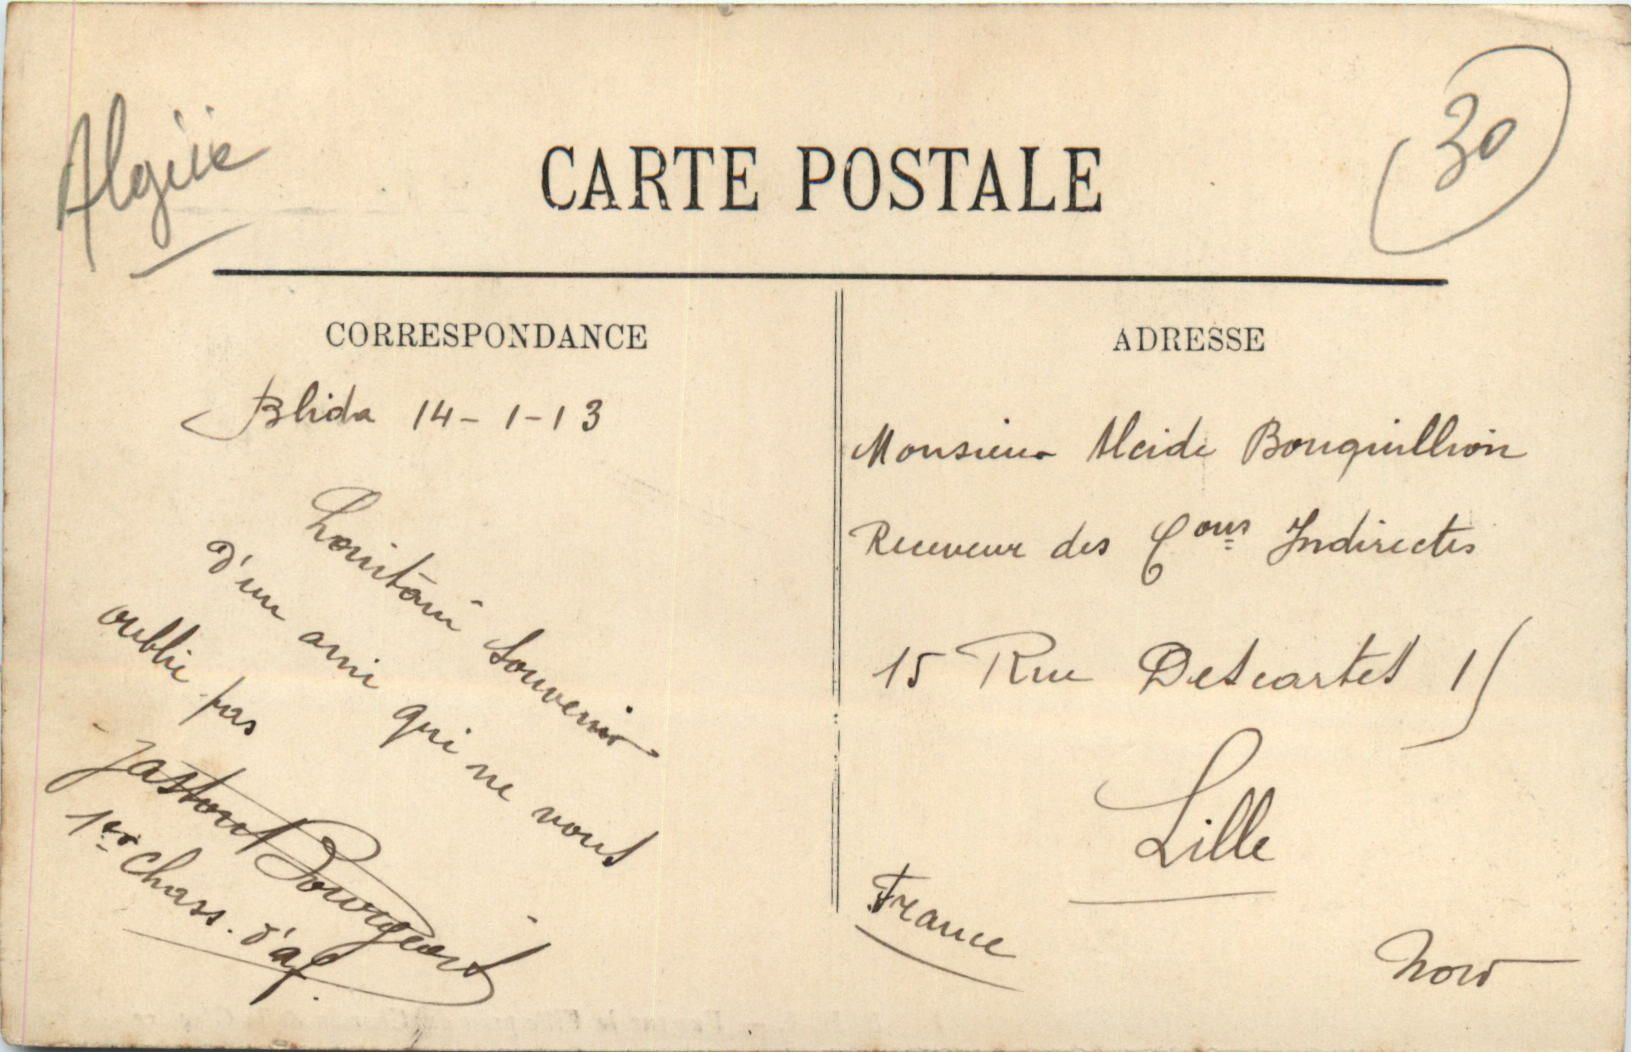 Algérie
30
CARTE POSTALE
CORRESPONDANCE
Blida 14-1-13
Lointain Souvenir
d'un ami qui ne vous
oublie pas
Gaston Bourgeois
1er Chass. d'af.
ADRESSE
Monsieur Alcide Bouquillion
Receveur des Cons Indirectes
15 Rue Descartes 15
Lille
France
Nord